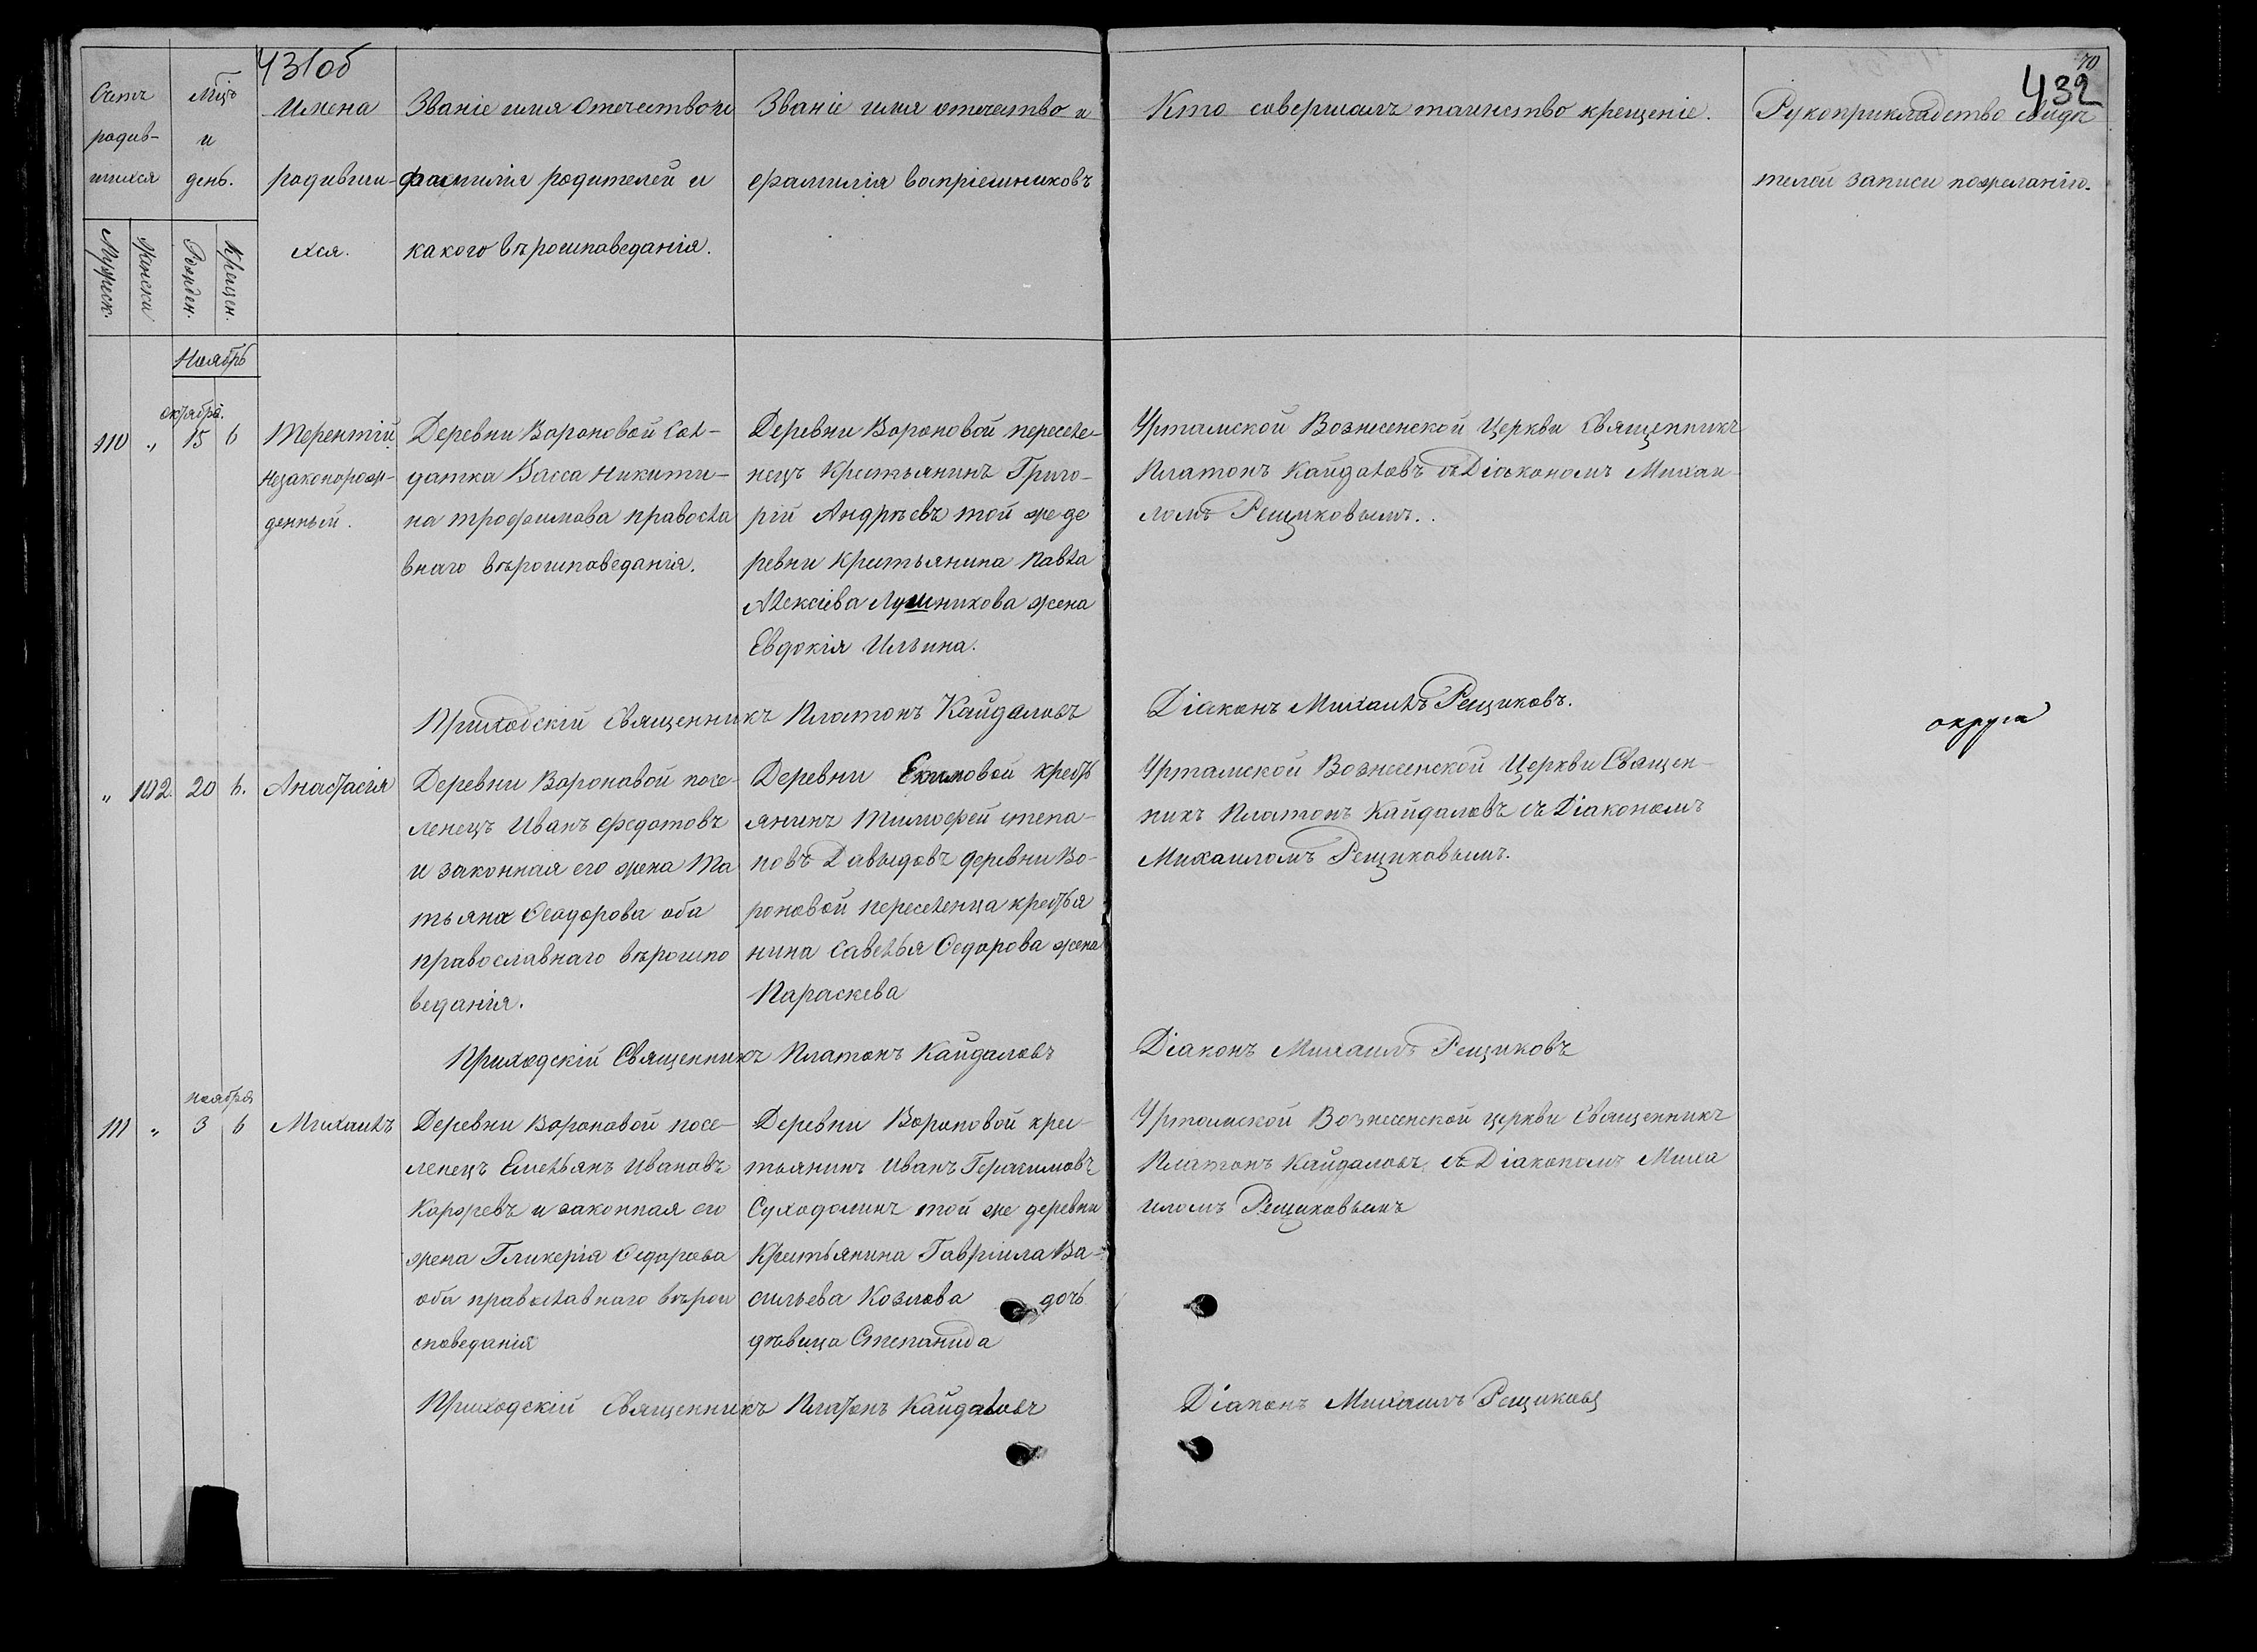 431об
432
70
Счетъ
родив-
шихся
Мужеск.
Женски
Мцъ
и
день.
Рожден.
Крещен.
Имена
родивши-
хся.
Званіе имя отечество и
фамилія родителей и
какого вѣроисповеданія.
Званіе имя отечество и
фамилія воспріемниковъ
Кто совершалъ таинство крещеніе.
Рукоприкладство свидѣ
телей записи пожеланію.
Ноябрь
октября.
110 " 15 6
Терентій
незаконорож-
денный.
Деревни Вороновой сол-
датка Васса Никити-
на трофимова правосла
внаго вѣроисповеданія.
Деревни Вороновой переселе-
нецъ Крестьянинъ Григо-
рій Андрѣевъ той же де
ревни Крестьянина Павла
Алексіева Лушникова жена
Евдокія Ильина.
Уртамской Вознесенской Церкви Священникъ
Платонъ Кайдаловъ съ Діокономъ Михаи-
ломъ Рещиковымъ.
Приходскій Священникъ Платонъ Кайдаловъ
Діаконъ Михаилъ Рещиковъ.
округа
" 102. 20 6.
Анастасія
Деревни Вороновой посе-
ленецъ Иванъ Федотовъ
и законная его жена Та
тьяна Феодорова оба
православнаго вѣроиспо
веданія.
Деревни Екимовой кресть
янинъ Тимофей степа-
новъ Давыдовъ деревни Во-
роновой переселенца крестья
нина Савелья Федорова жена
Параскева
Уртамской Вознесенской Церкви Священ-
никъ Платонъ Кайдаловъ съ Діакономъ
Михаиломъ Рещиковымъ.
Приходскій Священникъ Платонъ Кайдаловъ
Діаконъ Михаилъ Рещиковъ
ноября
111 " 3 6
Михаилъ
Деревни Вороновой посе-
ленецъ Емельянъ Ивановъ
Каревъ и законная его
жена Гликерія Федорова
оба православнаго вѣрои
споведанія
Деревни Вороновой крес-
тьянинъ Иванъ Герасимовъ
Суходолинъ той же деревни
Крестьянина Гавріила Ва-
сильева Козлова дочь
дѣвица Степанида
Уртамской Вознесенской церкви Священникъ
Платонъ Кайдаловъ съ Діакономъ Миха
иломъ Рещиковымъ
Приходскій Священникъ Платонъ Кайдаловъ
Діаконъ Михаилъ Рещиковъ